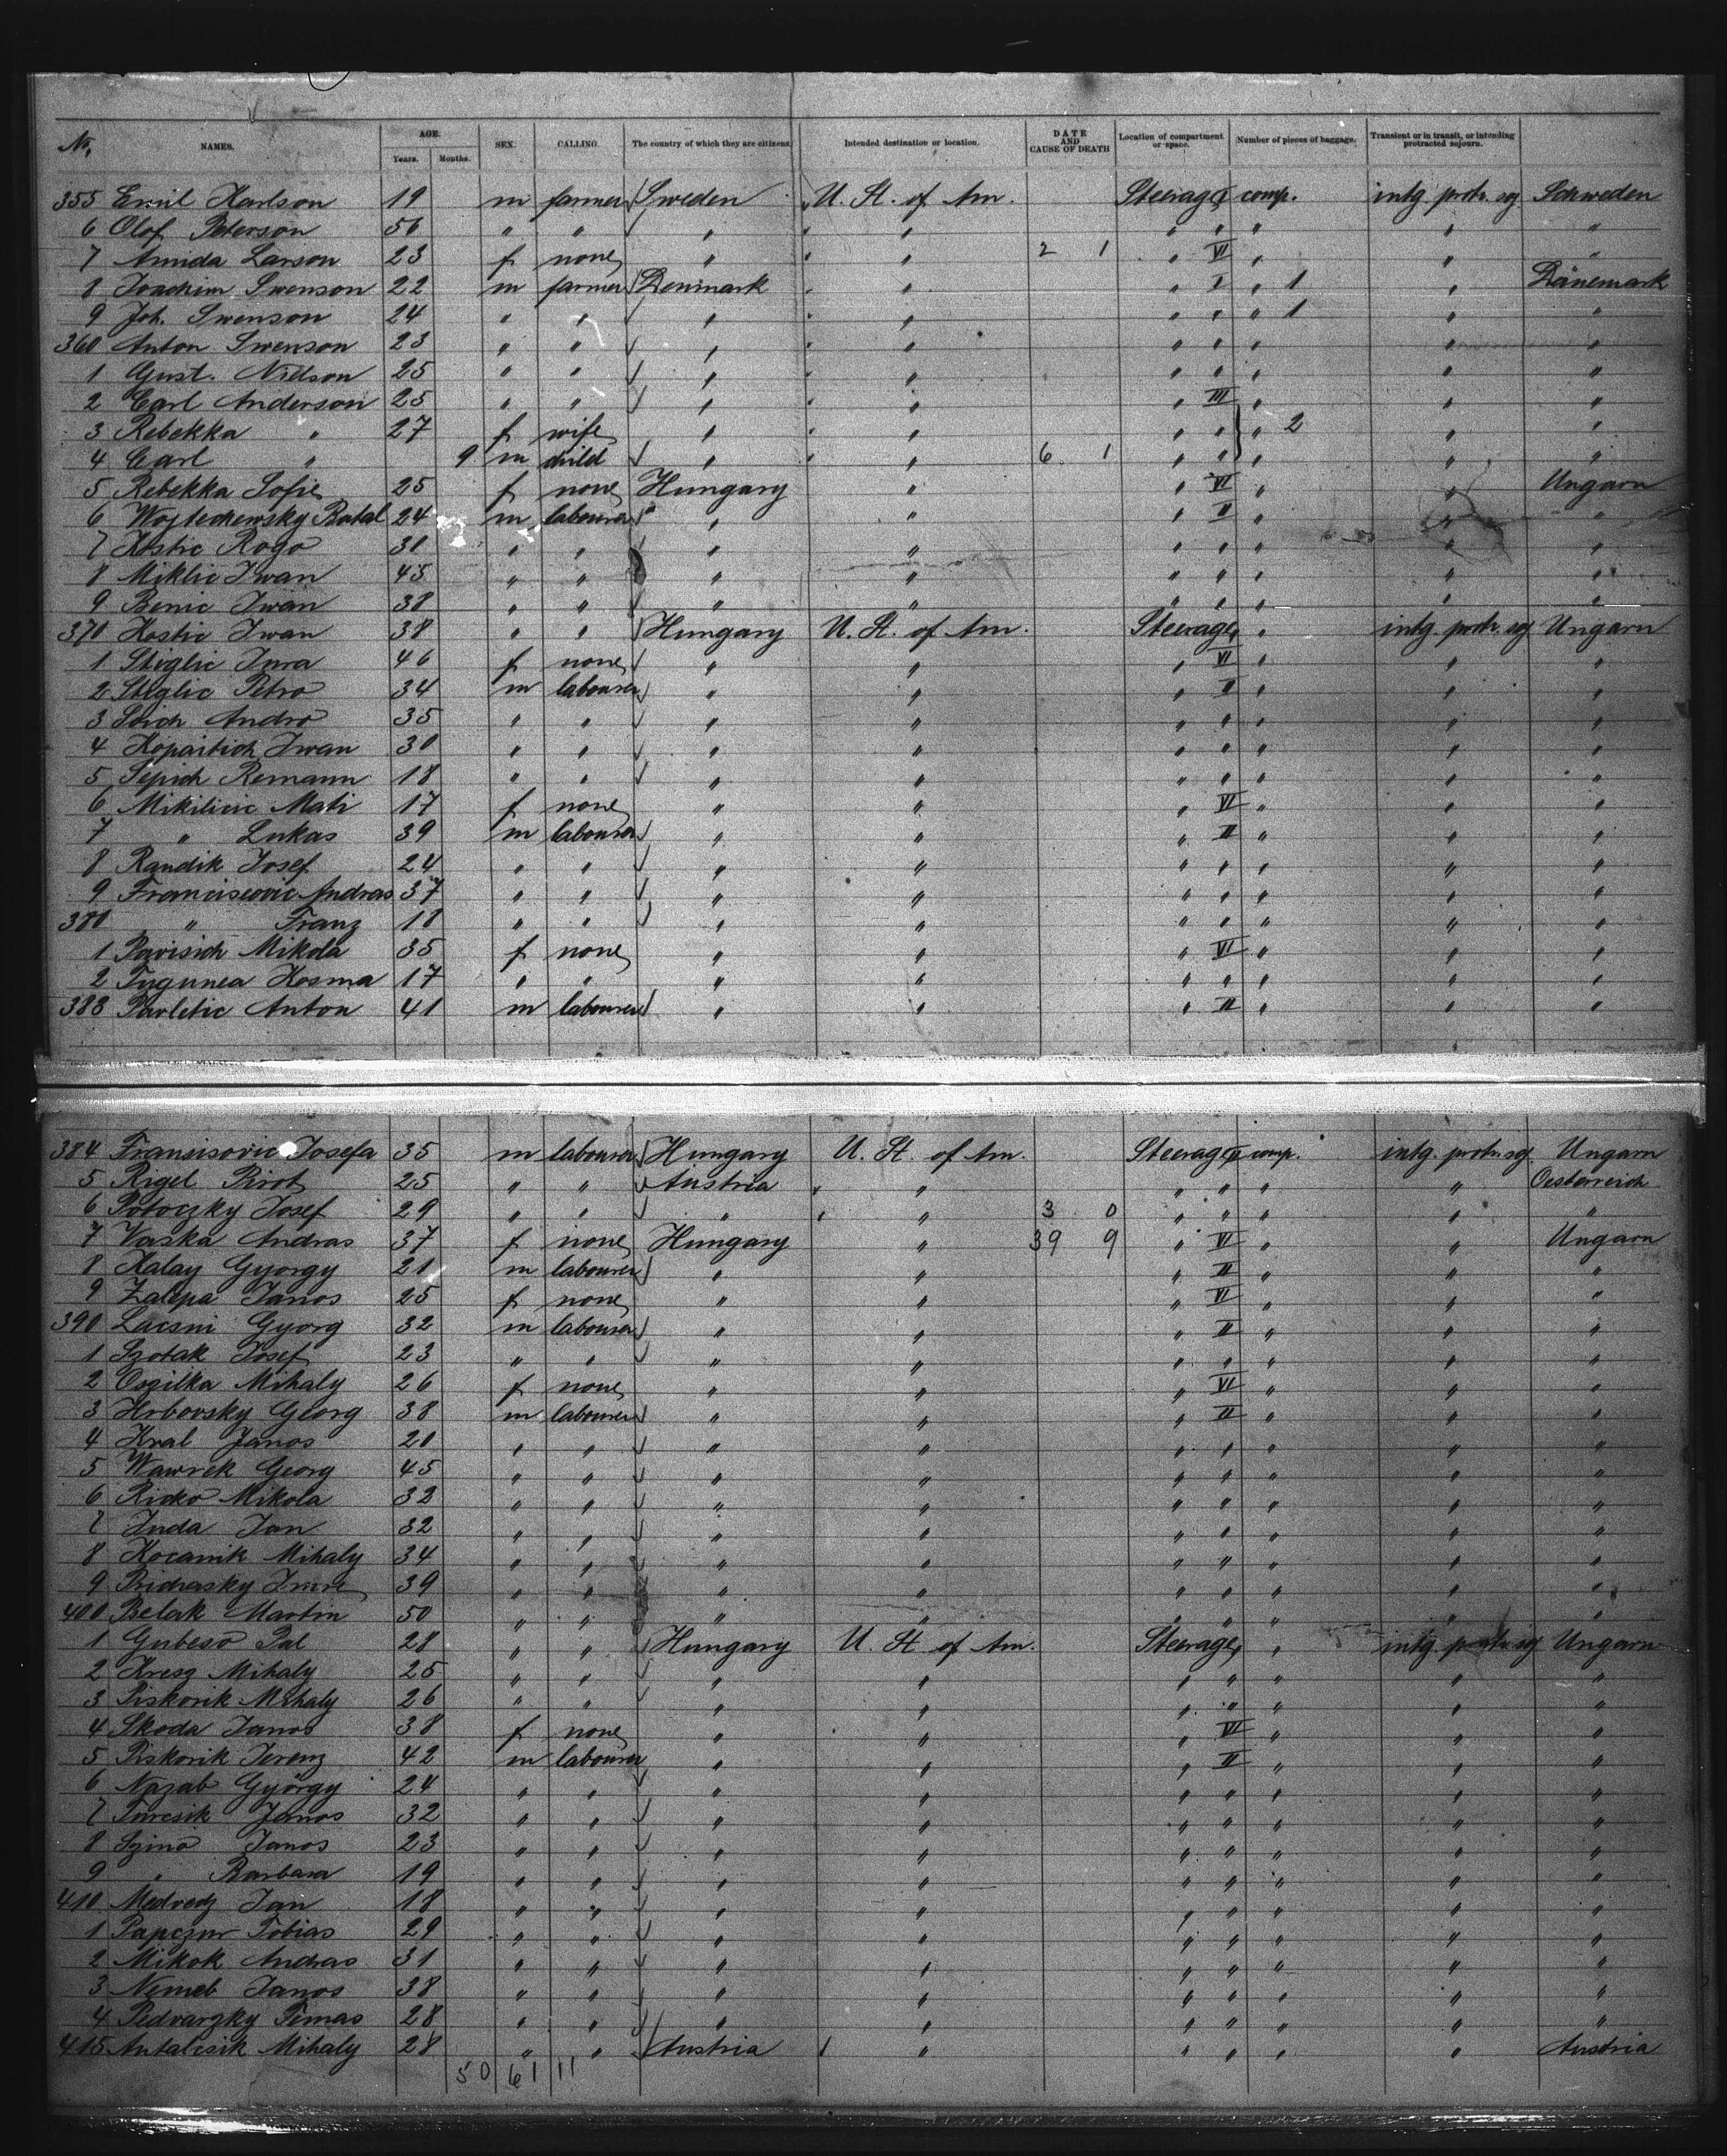 No. NAMES. AGE. Years. Months. SEX. CALLING. The country of which they are citizens Intended destination or location. DATE AND CAUSE OF DEATH Location of compartment or space. Number of pieces of baggage. Transient or in transit, or intending protracted sojourn.
355 Emil Karlson 19 m farmer Sweden U. St. of Am. Steerage I comp. intg. protr. soj. Schweden
6 Olof Peterson 56 " " " " " " " " "
7 Amida Larson 23 f none " " 2 1 " VI " " "
8 Joachim Swenson 22 m farmer Denmark " " I " 1 " Dänemark
9 Joh. Swenson 24 " " " " " " " 1 " "
360 Anton Swenson 23 " " " " " " " " "
1 Gust. Nielson 25 " " " " " " " " "
2 Carl Anderson 25 " " " " " III " " "
3 Rebekka " 27 f wife " " " " " 2 " "
4 Carl " 9 m child " " 6 1 " " " " "
5 Rebekka Sofie 25 f none Hungary " " VI " " Ungarn
6 Wojtechewsky Batal 24 m labourer " " " II " " "
7 Kostic Rogo 31 " " " " " " " " "
8 Miklic Iwan 45 " " " " " " " " "
9 Benic Iwan 38 " " " " " " " " "
370 Kostic Iwan 38 " " Hungary U. St. of Am. Steerage " " intg. protr. soj Ungarn
1 Stiglic Jura 46 f none " " " VI " " "
2 Stiglic Petro 34 m labourer " " " II " " "
3 Stich Andro 35 " " " " " " " " "
4 Kopaitich Iwan 30 " " " " " " " " "
5 Sepich Remann 18 " " " " " " " " "
6 Mikilicic Mati 17 f none " " " VI " " "
7 " Lukas 39 m labourer " " " II " " "
8 Randik Josef 24 " " " " " " " " "
9 Franciscovic Andras 37 " " " " " " " " "
380 " Franz 18 " " " " " " " " "
1 Pavisich Mikola 35 f none " " " VI " " "
2 Tugunea Kosma 17 " " " " " " " " "
383 Pavletic Anton 41 m labourer " " " II " " "
384 Fransisovic Josefa 35 m labourer Hungary U. St. of Am. Steerage II comp. intg. protr. soj Ungarn
5 Rigel Pirot 25 " " Austria " " " " " Oesterreich
6 Potoczky Josef 29 " " " " 3 0 " " " " "
7 Vaska Andras 37 f none Hungary " 39 9 " VI " " Ungarn
8 Kalay Gyorgy 21 m labourer " " " II " " "
9 Zalepa Janos 25 f none " " " VI " " "
390 Lacsni Gyorg 32 m labourer " " " II " " "
1 Szotak Josef 23 " " " " " " " " "
2 Oszilka Mihaly 26 f none " " " VI " " "
3 Hrbovsky Georg 38 m labourer " " " II " " "
4 Kral Janos 20 " " " " " " " " "
5 Wawrek Georg 45 " " " " " " " " "
6 Ridko Mikola 32 " " " " " " " " "
7 Juda Jan 32 " " " " " " " " "
8 Kocanik Mihaly 34 " " " " " " " " "
9 Pridrasky Imre 39 " " " " " " " " "
400 Belak Martin 50 " " " " " " " " "
1 Gubeso Pal 28 " " Hungary U. St. of Am. Steerage " intg. protr. soj Ungarn
2 Kresz Mihaly 25 " " " " " " " " "
3 Piskorik Mihaly 26 " " " " " " " " "
4 Skoda Janos 38 f none " " " VI " " "
5 Piskorik Ferenz 42 m labourer " " " II " " "
6 Nazab György 24 " " " " " " " " "
7 Turcsik Janos 32 " " " " " " " " "
8 Szina Janos 23 " " " " " " " " "
9 " Barbara 19 " " " " " " " " "
410 Medvedz Jan 18 " " " " " " " " "
1 Papczur Tobias 29 " " " " " " " " "
2 Mikok Andras 31 " " " " " " " " "
3 Nemeb Janos 38 " " " " " " " " "
4 Pedvarzky Timas 28 " " " " " " " " "
415 Antalcsik Mihaly 28 " " Austria " " " " " Austria
50 61 11